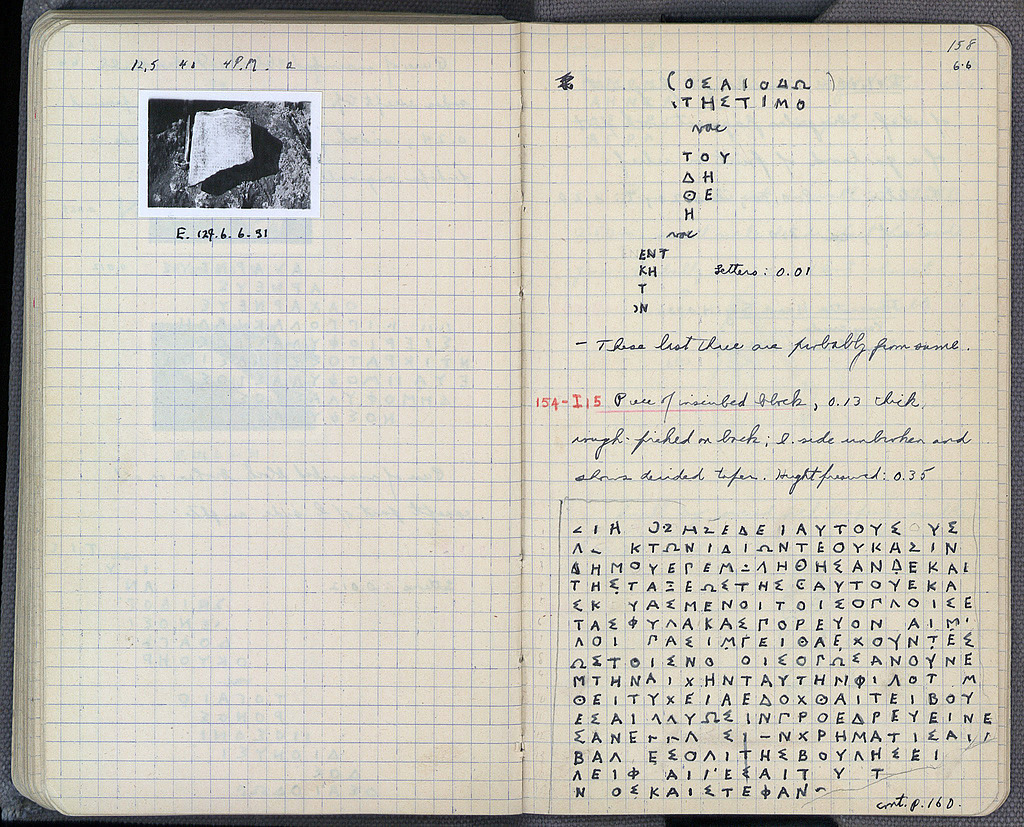 12,5 40 4P.M. a
E. 129. 6. 6-31
158
6.6
(ΟΣΑΙΟΔΩ)
ΤΗΣΤΙΜΟ
vac
ΤΟΥ
ΔΗ
ΘΕ
Η
vac
ΕΝΤ
ΚΗ Letters: 0.01
Τ
Ν
- These last three are probably from same.
154-I15 Piece of inscribed block, 0.13 thick,
rough-picked on back; l. side unbroken and
shows decided taper. Height preserved: 0.35
ΙΗ ΗΣΕΔΕΙΑΥΤΟΥΣ ΥΣ
ΚΤΩΝΙΔΙΩΝΤΕΟΥΚΑΣΙΝ
ΔΗΜΟΥΕΓΕΜ ΛΗΘΗΣΑΝΔΕΚΑΙ
ΤΗΣΤΑΞΕΩΣΤΗΣΕΑΥΤΟΥΕΚΑ
ΣΚ ΥΑΣΜΕΝΟΙΤΟΙΣΟΓΛΟΙΣΕ
ΤΑΣΦΥΛΑΚΑΣΓΟΡΕΥΟΝ ΑΙΜ
ΛΟΙ ΓΑΣΙΜΓΕΙΘΑΕΧΟΥΝΤΕΣ
ΩΣΤΟΙΣΝΟ ΟΙΣΟΓΩΣΑΝΟΥΝΕ
ΜΤΗΝΑΙΧΗΝΤΑΥΤΗΝΦΙΛΟΤ Μ
ΘΕΙΤΥΧΕΙΑΕΔΟΧΘΑΙΤΕΙΒΟΥ
ΕΣΑΙΛΛΥΩΣΙΝΓΡΟΕΔΡΕΥΕΙΝΕ
ΣΑΝΕ Λ ΣΙ ΝΧΡΗΜΑΤΙΣΑΙΓ
ΒΑΛ ΕΣΟΛΙΤΗΣΒΟΥΛΗΣΕΙ
ΛΕΙΦ ΑΙΓΕΣΑΙΤ Υ Τ
Ν ΟΣΚΑΙΣΤΕΦΑΝ
cont. p. 160.